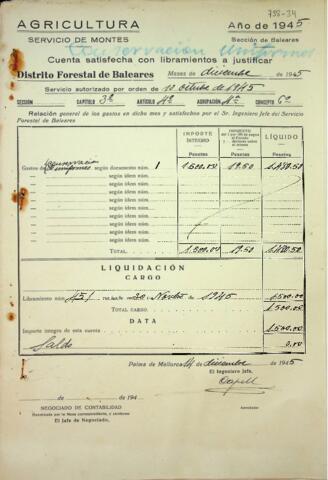 758-34
AGRICULTURA Año de 1945
SERVICIO DE MONTES Sección de Baleares
Conservación Uniformes
Cuenta satisfecha con libramientos a justificar
Distrito Forestal de Baleares Meses de diciembre de 1945
Servicio autorizado por orden de 10 octubre de 1945
SECCIÓN CAPÍTULO 3º ARTÍCULO 4º AGRUPACIÓN 4º CONCEPTO 6º
Relación general de los gastos en dicho mes y satisfechos por el Sr. Ingeniero Jefe del Servicio
Forestal de Baleares
IMPORTE ÍNTEGRO LÍQUIDO
Pesetas Pesetas Pesetas
Gastos de conservación uniformes según documento núm. 1 1.500.00 19.50 1.480.50
según ídem núm.
según ídem núm.
según ídem núm.
según ídem núm.
según ídem núm.
según ídem núm.
según ídem núm.
TOTAL 1.500.00 19.50 1.480.50
LIQUIDACIÓN
CARGO
Libramiento núm. 451 de 1945 1.500.00
TOTAL CARGO 1.500.00
DATA
Importe íntegro de esta cuenta 1.500.00
Saldo 0.00
Palma de Mallorca de diciembre de 1945
El Ingeniero Jefe,
de de 194
NEGOCIADO DE CONTABILIDAD
Examinada por la Mesa correspondiente, y conforme
El Jefe de Negociado,
Aprobada: